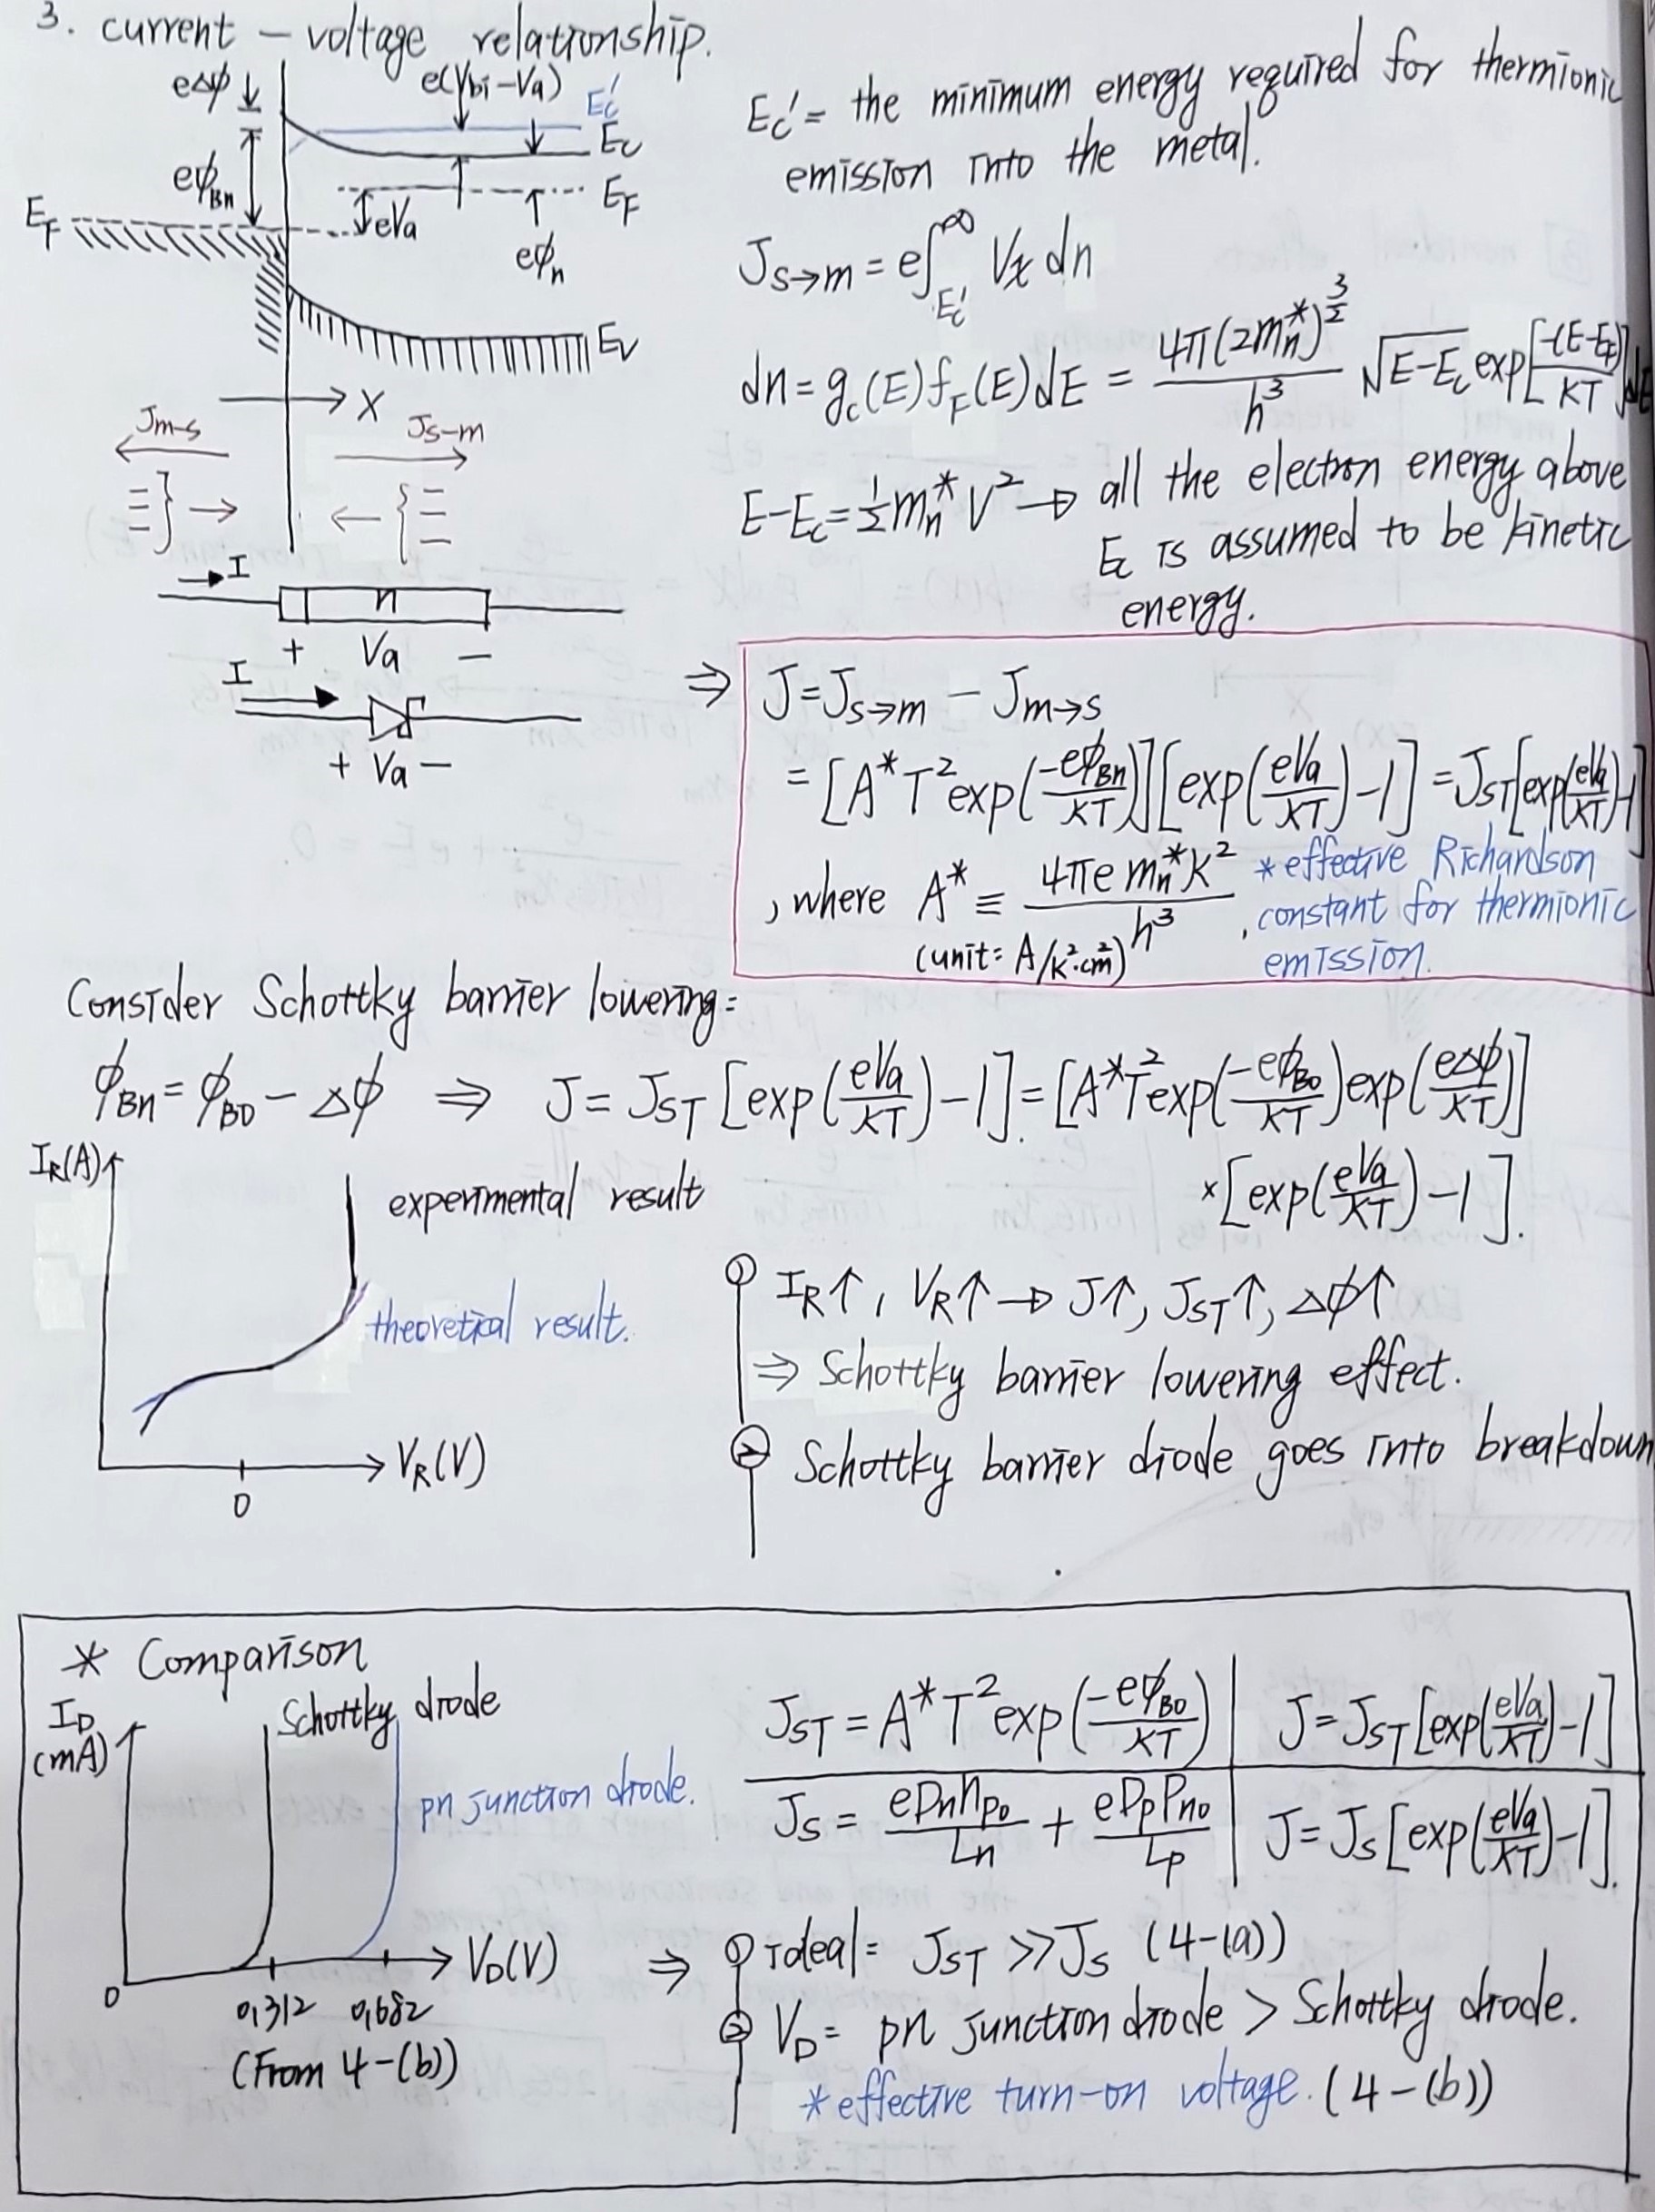 3. current – voltage relationship.
eΔϕ
e(Vbi−Va)
Ec'
Ec
eϕBn
EF
EF
eVa
eϕn
Ev
x
Jm-s
Js-m
I
n
+ Va −
I
+ Va −
Ec' = the minimum energy required for thermionic
emission into the metal.
Js→m = e∫_{Ec'}^{∞} Vx dn
dn = gc(E) fF(E) dE = \frac{4π(2mn*)^{3/2}}{h³} √(E−Ec) exp[\frac{-(E−EF)}{KT}] dE
E−Ec = ½ mn* V² → all the electron energy above
Ec is assumed to be kinetic
energy.
⇒ J = Js→m − Jm→s
= [A*T² exp(\frac{-eϕBn}{KT})][exp(\frac{eVa}{KT})−1] = JST[exp(\frac{eVa}{KT})−1]
, where A* ≡ \frac{4πe mn* K²}{h³}, *effective Richardson
constant for thermionic
(unit: A/K²·cm²)
emission.
Consider Schottky barrier lowering:
ϕBn = ϕB0 − Δϕ ⇒ J = JST [exp(\frac{eVa}{KT})−1] = [A*T² exp(\frac{-eϕB0}{KT}) exp(\frac{eΔϕ}{KT})]
×[exp(\frac{eVa}{KT})−1].
IR(A)
experimental result
theoretical result.
VR(V)
0
① IR↑, VR↑ → J↑, JST↑, Δϕ↑
⇒ Schottky barrier lowering effect.
② Schottky barrier diode goes into breakdown
* Comparison
ID
(mA)
Schottky diode
pn junction diode.
VD(V)
0
0,312 0,682
(From 4-(b))
JST = A*T² exp(\frac{-eϕB0}{KT}) | J = JST [exp(\frac{eVa}{KT})−1]
Js = \frac{eDn np0}{Ln} + \frac{eDp Pn0}{Lp} | J = Js [exp(\frac{eVa}{KT})−1].
⇒ ① ideal: JST ≫ Js (4-(a))
② VD: pn junction diode > Schottky diode.
*effective turn-on voltage. (4-(b))